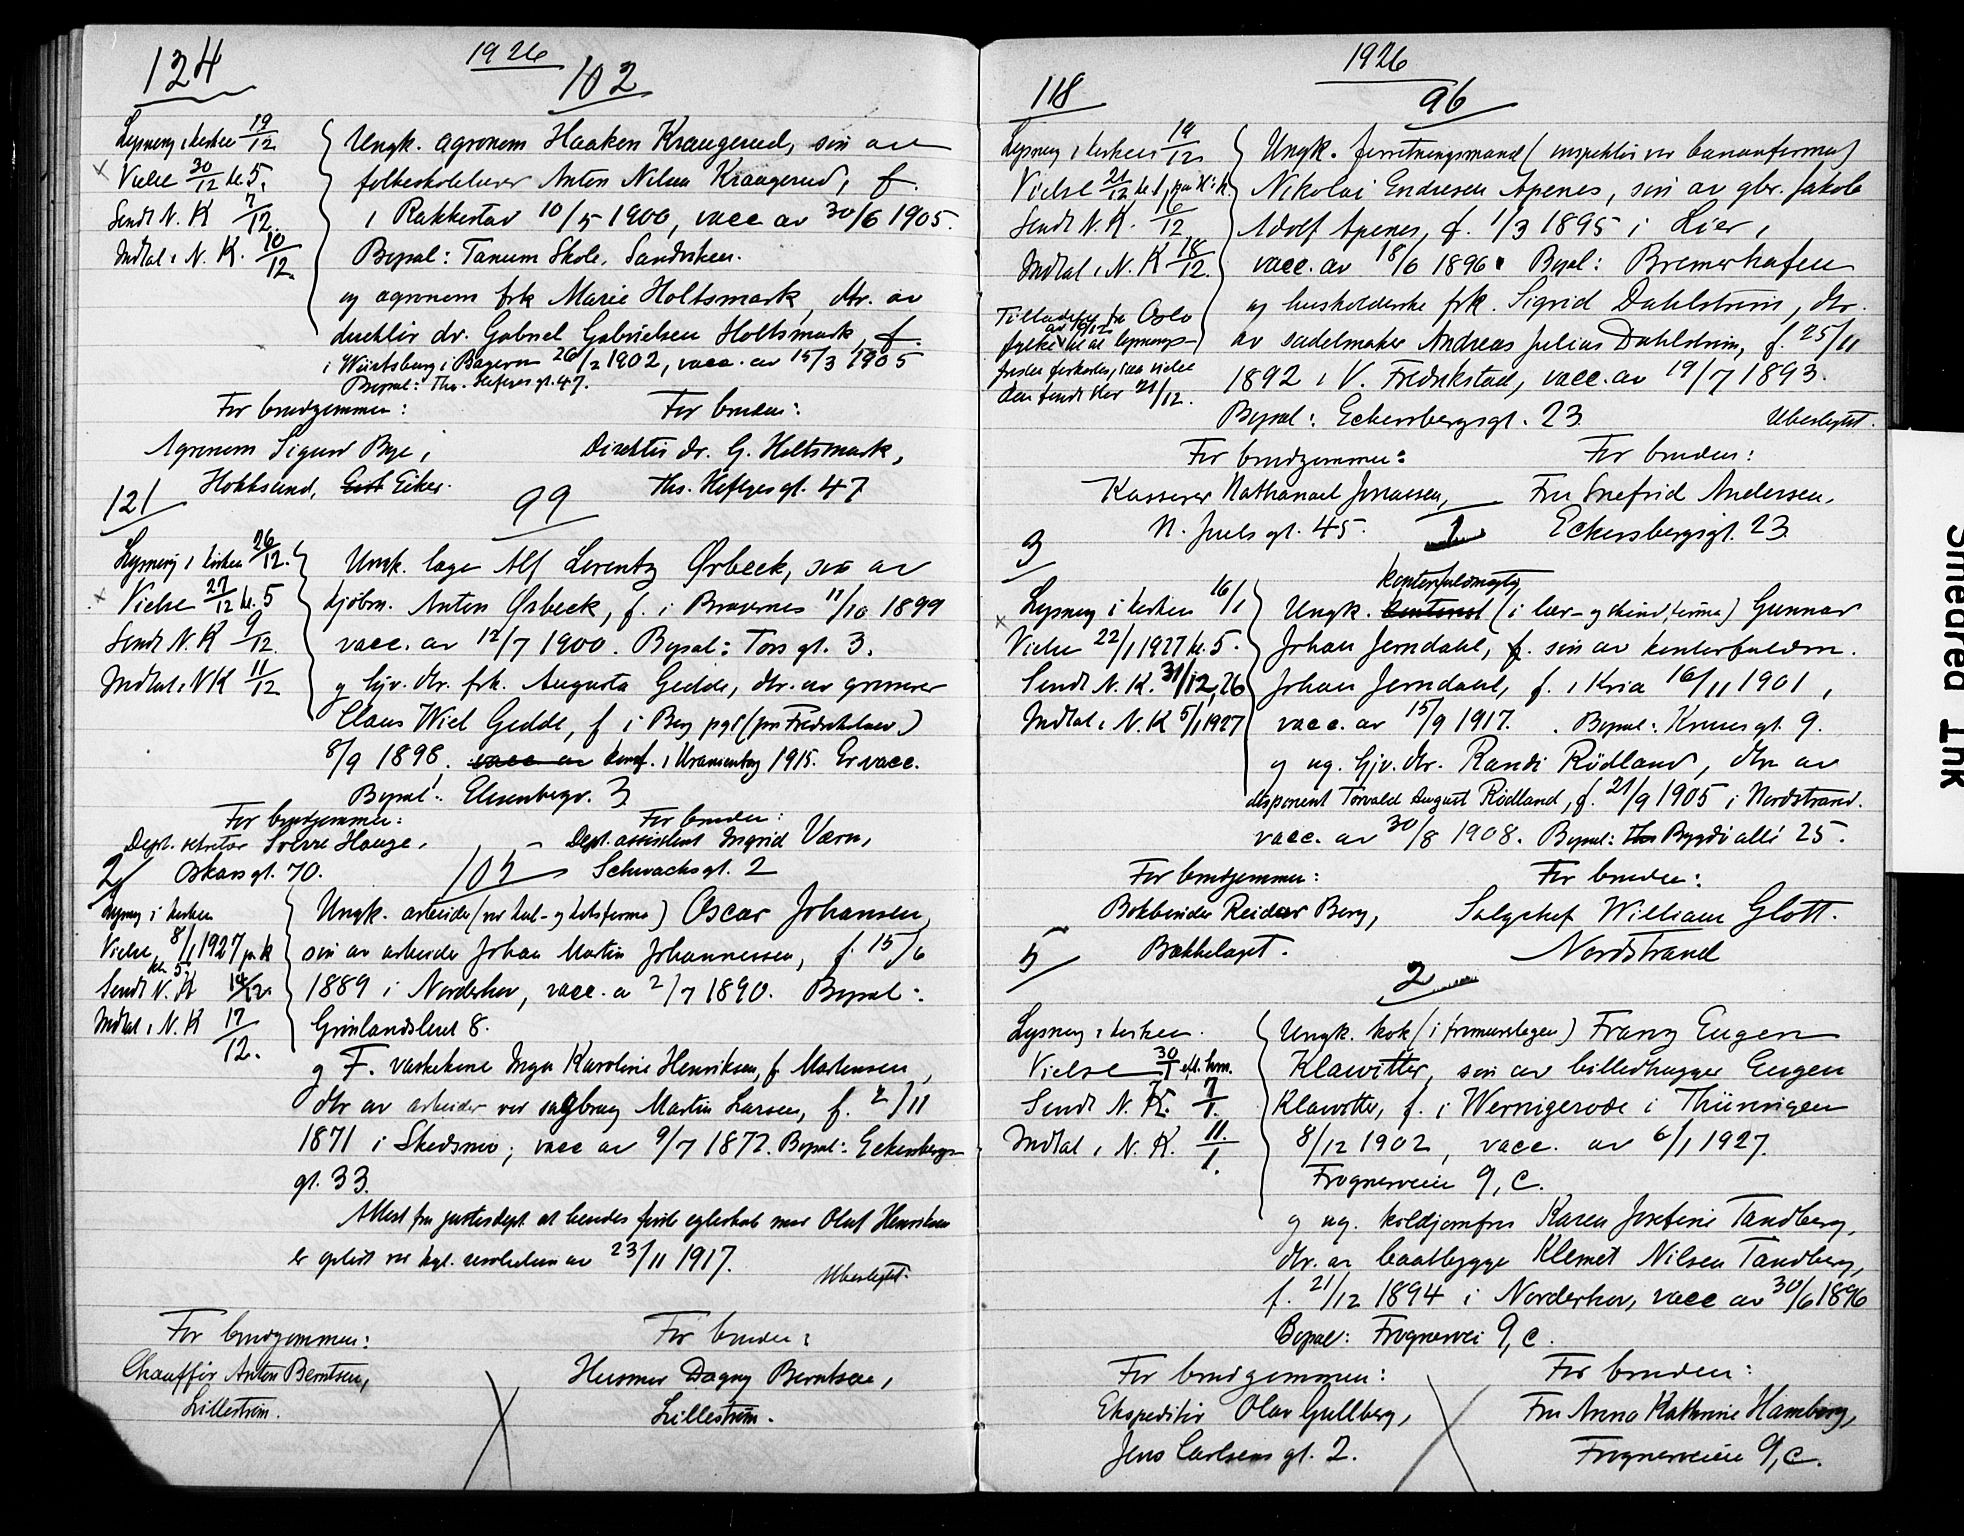 1926
124
102
Lysning i kirken 19/12
Vielse 30/12 kl. 5.
Sendt N. K 7/12.
Indtat i N. K. 10/12.
Ungk. agronom Haaken Kraugerud, søn av
folkeskolelærer Anton Nilsen Kraugerud, f.
i Rakkestad 10/5 1900, vacc av 30/6 1905.
Bopæl: Tanum Skole, Sandviken.
og agronom frk Marie Holtsmark, dtr. av
direktør dr. Gabriel Gabrielsen Holtsmark, f.
i Würtsburg i Bayern 26/2 1902, vacc. av 15/3 1905
Bopæl: Ths. Heftyes gt. 47.
For brudgommen:
For bruden:
Agronom Sigurd Bye,
Direktør dr. G. Holtsmark,
Hokksund, Eiker.
Ths. Heftyes gt. 47
121
99
Lysning i kirken 26/12.
Vielse 27/12 kl. 5
Sendt N. K 9/12.
Indtat i NK 11/12
Ungk. læge Alf Lorentz Ørbeck, søn av
kjøbm. Anton Ørbeck, f. i Bragernes 11/10 1899
vacc. av 12/7 1900. Bopæl: Tors gt. 3.
og hjv. dtr. frk. Augusta Gedde, dtr. av grosserer
Claus Wiel Gedde, f i Berg pgl (pr Fredrikshald)
8/9 1898. vacc av konf. i Uranienborg 1915. Er vacc.
Bopæl: Elisenbergv. 3.
For brudgommen:
For bruden:
Dept. sekretær Sverre Hauge,
Dept. assistent IngridVærn,
Oskars gt. 70.
Schwachs gt. 2
2
105
Lysning i kirken
Vielse 8/1 1927 pr k
kl. 5
Sendt N. K 14/12
Indtat i N. K 17/12.
Ungk. arbeider (ved kul- og koksfirma) Oscar Johansen,
søn av arbeider Johan Martin Johannessen, f. 15/6
1889 i Norderhov, vacc. a 2/7 1890. Bopæl:
Grønlandsleret 8.
og F. vaskekone Inga Karoline Henriksen, f. Martensen,
dtr av arbeider ved sagbrug Martin Larsen, f. 2/11
1871 i Skedsmo; vacc av 9/7 1872. Bopæl: Eckersbergs-
gt. 33.
Attest fra justisdept at hendes første egteskab med Oluf Henriksen
er opløst ved kgl. resolution av 23/11 1917.
Ubeslegtet.
For brudgommen:
For bruden:
Chauffør Anton Berntsen,
Husmor Dagny Berntsen,
Lillestrøm.
Lillestrøm.
1926
118
96
Lysning i kirken 19/12
Vielse 21/12 kl. 1,
Sendt N. K. 16/12
Indtat i N. K 18/12.
Tilladelse fra Oslo
av 18/12
fylke til at lysnings-
fristen forkortes, saa vielse
kan finde sted 21/12.
Ungk. forretningsmand (inspektør ved bananfirma)
Nikolai Endresen Apenes, søn av gbr. Jakob
Adolf Apenes, f. 1/3 1895 i Lier,
vacc. av 18/6 1896. Bopæl: Bremerhafen
og husholderske frk. Sigrid Dahlstrøm, dtr.
av sadelmaker Andreas Julius Dahlstrøm, f. 25/11
1892 i V. Fredrikstad, vacc. av 19/7 1893.
Bopæl: Eckersbergsgt. 23.
Ubeslegtet.
For brudgommen:
For bruden:
Kasserer Nathanael Jonassen,
Fru Snefrid Andersen,
N. Juels gt. 45.
Eckersbergsgt. 23.
3
1
Lysning i kirken 16/1
Vielse 22/1 1927 kl. 5.
Sendt N. K. 31/12, 26
Indtat i N. K 5/1 1927
kontorfuldmægtig
Ungk. kontorist (i lær- og skindfirma) Gunnar
Johan Jerndahl, f. søn av kontorfuldm.
Johan Jerndahl, f. i Kria 16/11 1901,
vacc. av 15/9 1917. Bopæl: Kruses gt. 9.
og ug. hjv. dtr. Randi Rødland, dtr av
disponent Torvald August Rødland, f. 21/9 1905 i Nordstrand.
vacc. av 30/8 1908. Bopæl: Ths Bygdø allé 25.
For brudgommen:
For bruden:
Bokbinder Reidar Berg,
Salgchef William Glott.
Bækkelaget.
Nordstrand
5
2
Lysning i kirken.
Vielse 30/1 eft. høm.
Sendt N. K. 7/1.
Indtat i N. K. 11./1.
Ungk. kok (i frimurerlogen) Franz Eugen
Klawitter, søn av billedhugger Eugen
Klawitter, f. i Wernigerode i Thüringen
8/12 1902, vacc. av 6/1 1927.
Frognerveien 9, c.
og ug. koldjomfru Karen Josefine Tandberg,
dtr. av baatbygger Klemet Nilsen Tandberg,
f. 21/12 1894 i Norderhov, vacc av 30/6 1896
Bopæl: Frognervei 9, c.
For brudgommen:
For bruden:
Ekspeditør Olav Gullberg,
Fru Anna Kathrine Hamborg,
Jens Carlsens gt. 2.
Frognerveien 9, c.
Smeared Ink